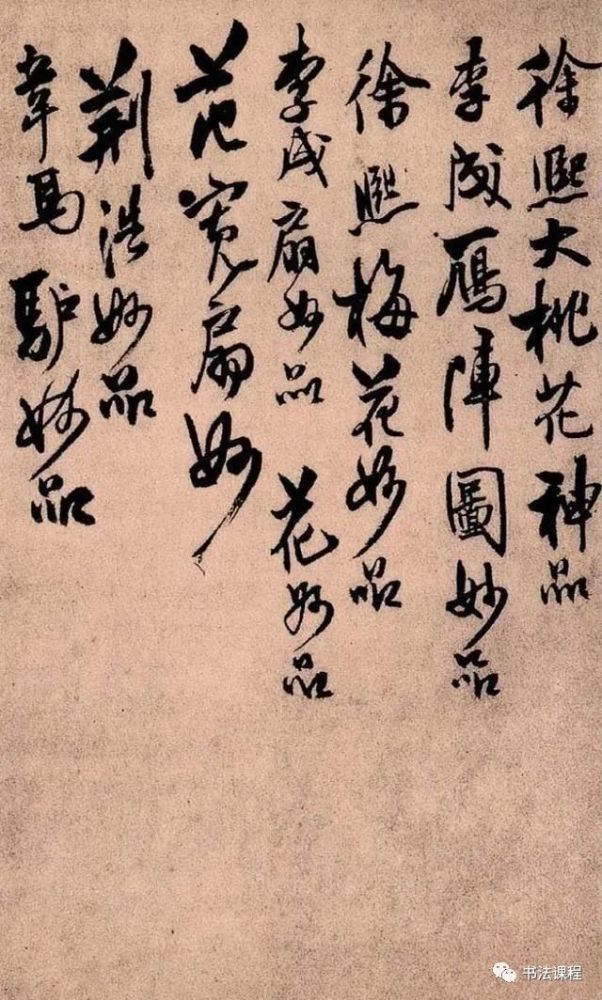 徐熙大桃花神品
李成雁阵圖妙品
徐熙梅花妙品
李成扇妙品 花妙品
范寛扇妙
荆浩妙品
韋馬驴妙品
书法课程